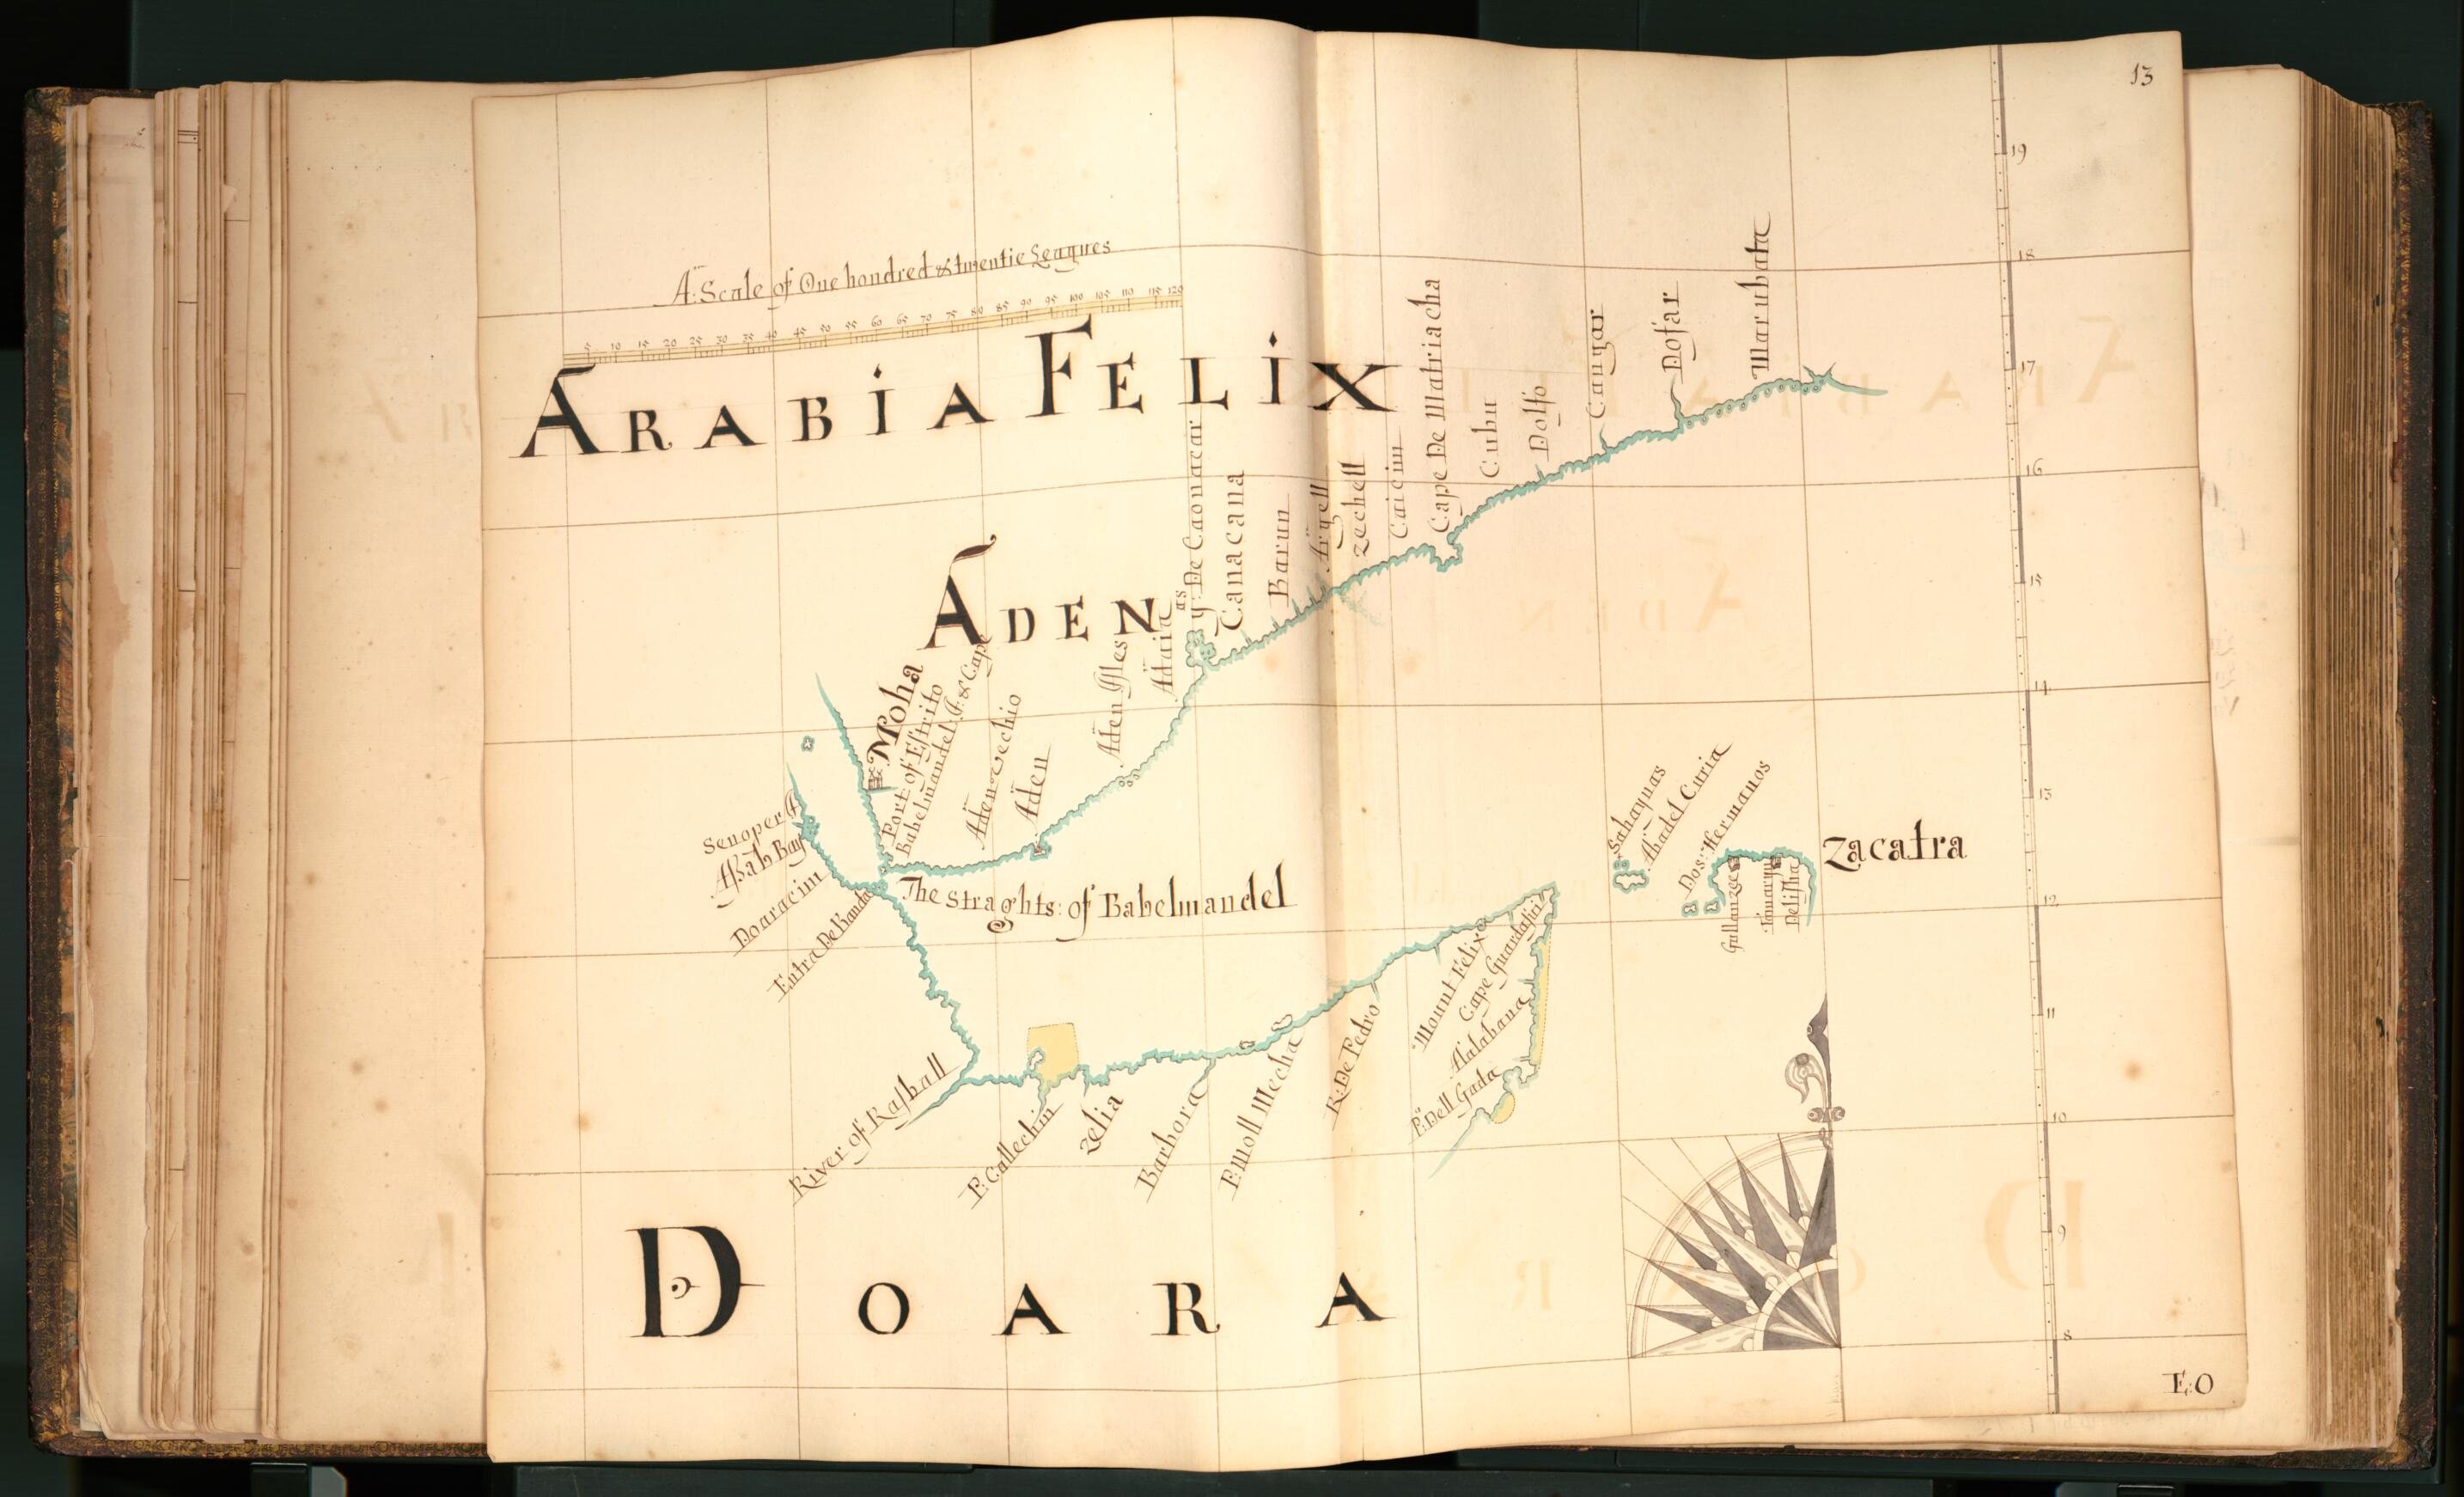 13
19
18
17
16
15
14
13
12
11
10
9
8
A: Scale of One hondred & twentie Leagues
5 10 15 20 25 30 35 40 45 50 55 60 65 70 75 80 85 90 95 100 105 110 115 120
ARABIA FELIX
ADEN
Moha
Port of Estrito
Babelmandel I: & Cape
Aden vechio
Aden
Aden Isles
Adaia
yas: De Caonacar
Canacana
Barun
Argell
zechell
Caicim
Cape De Matriacha
Cubu
Dolfo
Cangar
Dofar
Marubata
Senoper I
Asab Bay
Doaracim
Entra De Banda
The straghts: of Babelmandel
River of Rasball
P: Callechin
zelia
Barbora
P: moll Mecha
R: De Pedro
Mount Felix
Cape Guardafini
Halabana
P: Dell Gada
Sahaynas
Abadel Curia
Dos: Hermanos
zacatra
Gallanzoe
Tamaryn
Delisha
DOARA
E:O